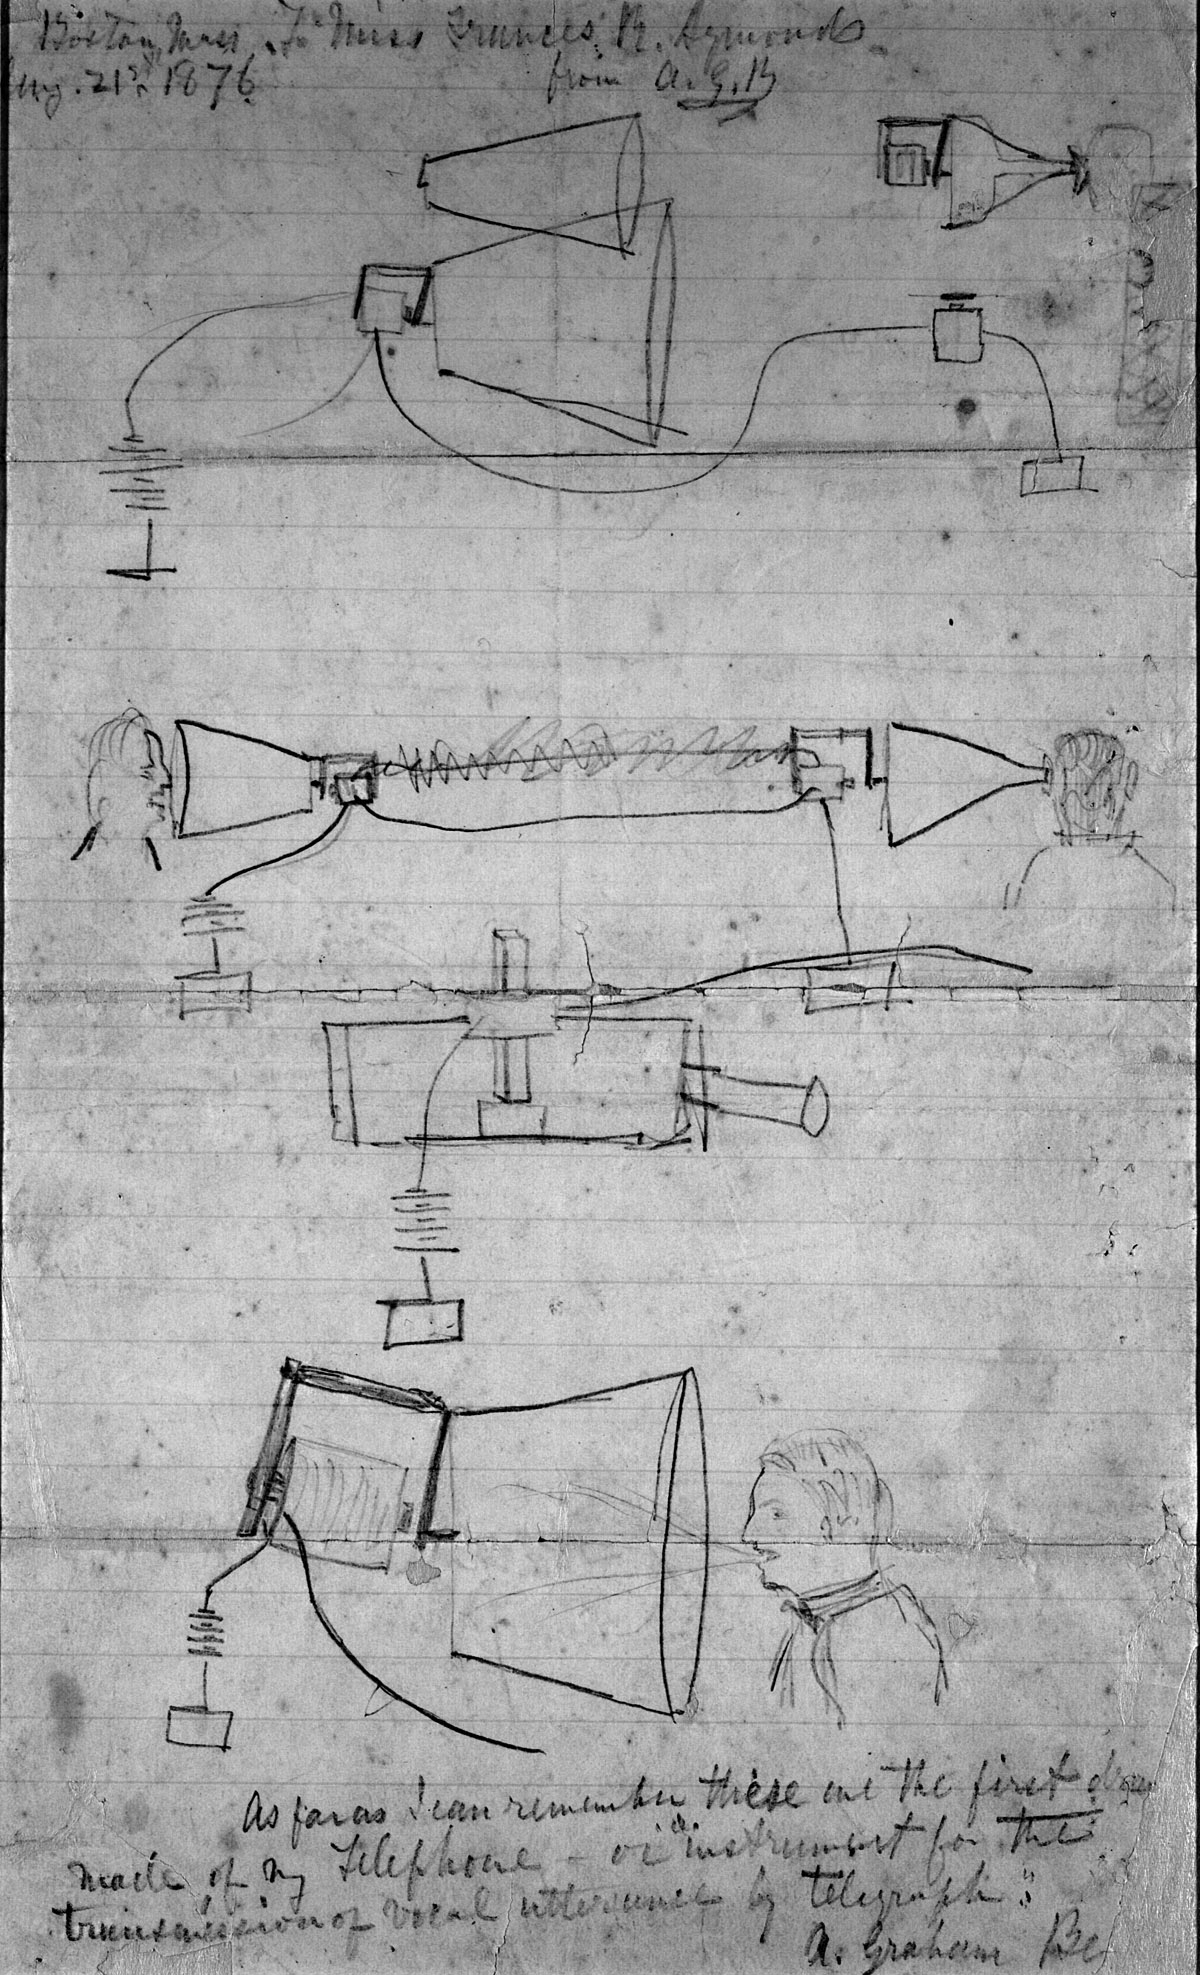 Boston, Mass. To Miss Frances M. Symonds
Aug. 21st. 1876. from A. G. B
As far as I can remember these are the first
made of my telephone – or "instrument for the
transmission of vocal utterance by telegraph".
A. Graham Be